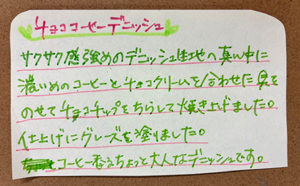 チョココーヒーデニッシュ
サクサク感強めのデニッシュ生地の真ん中に
濃いめのコーヒーとチョコクリームを合わせた具を
のせてチョコチップをちらして焼き上げました。
仕上げにグレーズを塗りました。
コーヒー香るちょっと大人なデニッシュです。